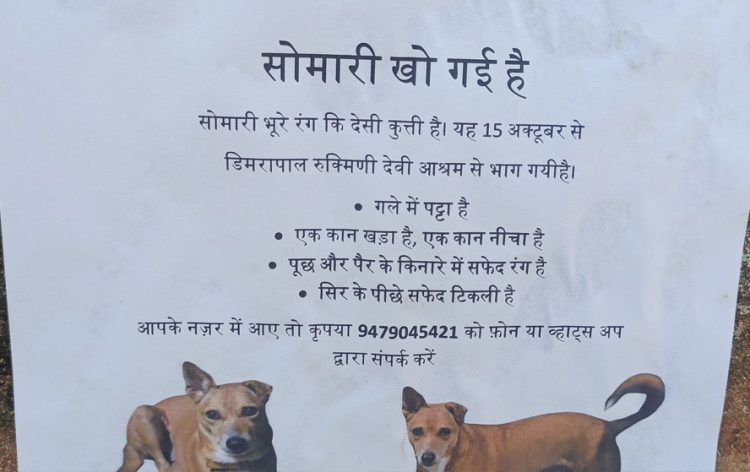 सोमारी खो गई है
सोमारी भूरे रंग कि देसी कुत्ती है। यह 15 अक्टूबर से
डिमरापाल रुक्मिणी देवी आश्रम से भाग गयीहै।
• गले में पट्टा है
• एक कान खड़ा है, एक कान नीचा है
• पूछ और पैर के किनारे में सफेद रंग है
• सिर के पीछे सफेद टिकली है
आपके नज़र में आए तो कृपया 9479045421 को फ़ोन या व्हाट्स अप
द्वारा संपर्क करें